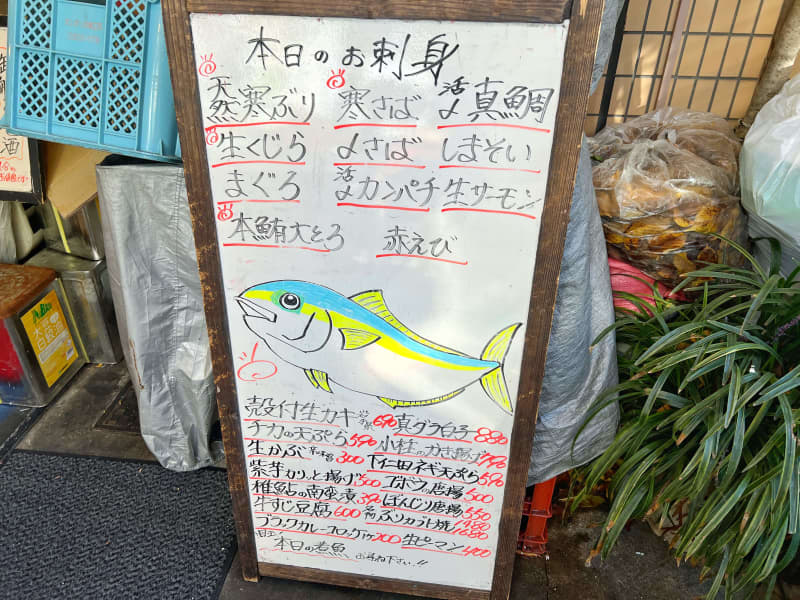 本日のお刺身
天然寒ぶり 寒さば 活〆真鯛
生くじら 〆さば しまぞい
まぐろ 活〆カンパチ 生サーモン
本鮪大とろ 赤えび
殻付生カキ 690 真ダラ白子 880
チカの天ぷら 590 小柱のかき揚げ
生かぶ 300 下仁田ネギ天ぷら 590
紫芋かりっと揚げ 500 ゴボウの唐揚 500
稚鮎の南蛮漬 390 ぼんじり唐揚 550
牛すじ豆腐 600 ぶりカブト焼
ブラックカレーコロッケ 200 生ピーマン 400
本日の煮魚 お尋ね下さい!!
酒